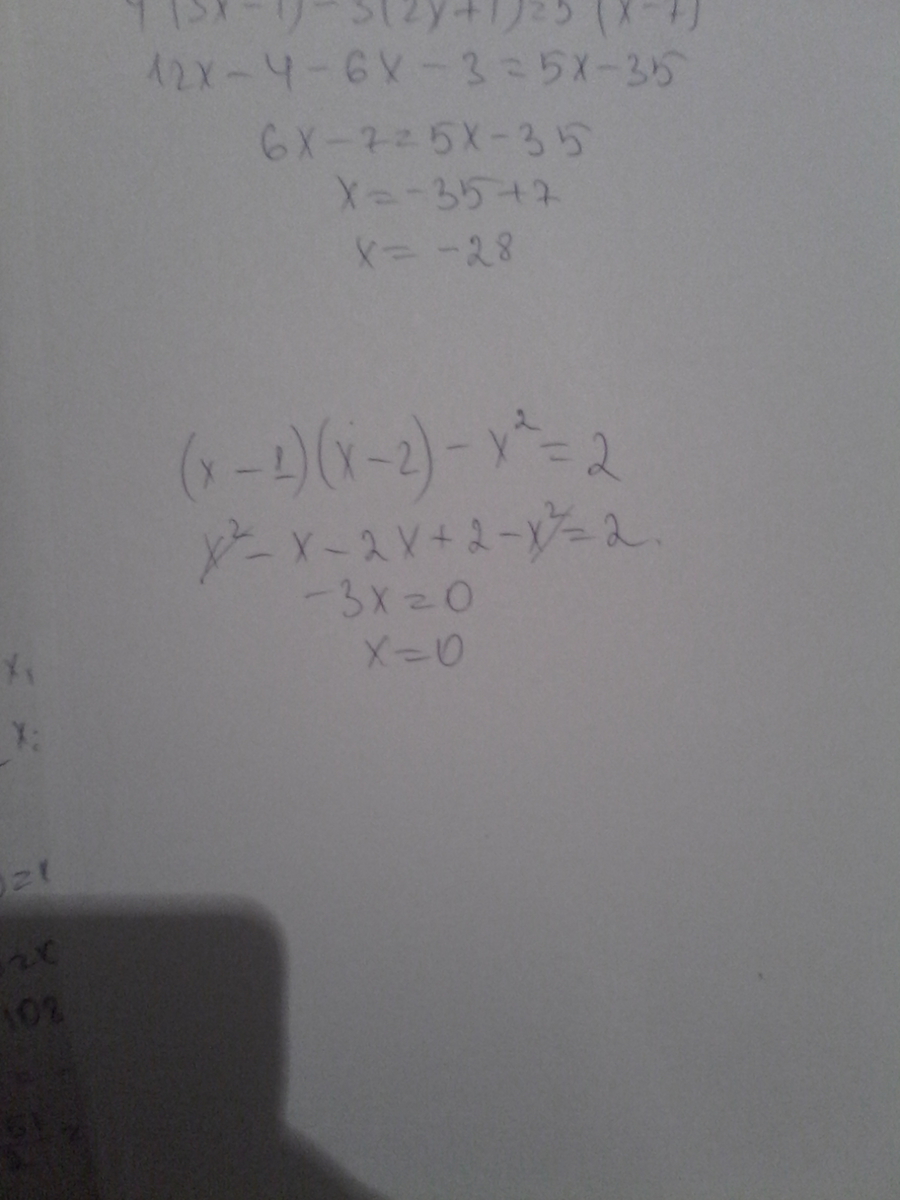 4(3x-1)-3(2x+1)=5(x-7)
12x-4-6x-3=5x-35
6x-7=5x-35
x=-35+7
x=-28
(x-1)(x-2)-x²=2
x²-x-2x+2-x²=2
-3x=0
x=0
x₁
)=x
108